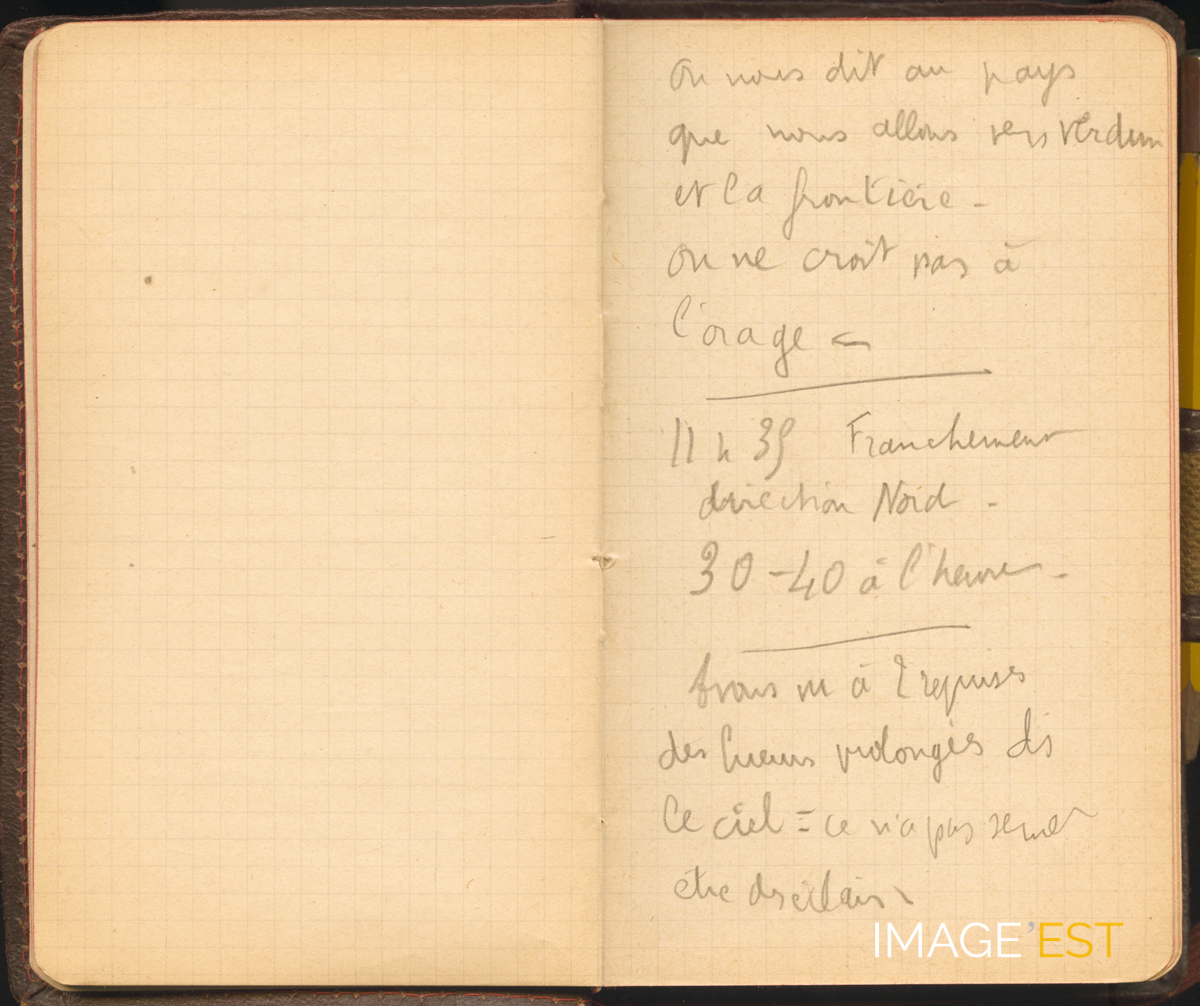 On nous dit au pays
que nous allons vers Verdun
et la frontière -
On ne croit pas à
l'orage -
11 h 35 Franchement
direction Nord -
30-40 à l'heure -
Avons vu à 2 reprises
des lueurs prolongées ds
le ciel = ce n'a pas
être des éclairs
IMAGE'EST